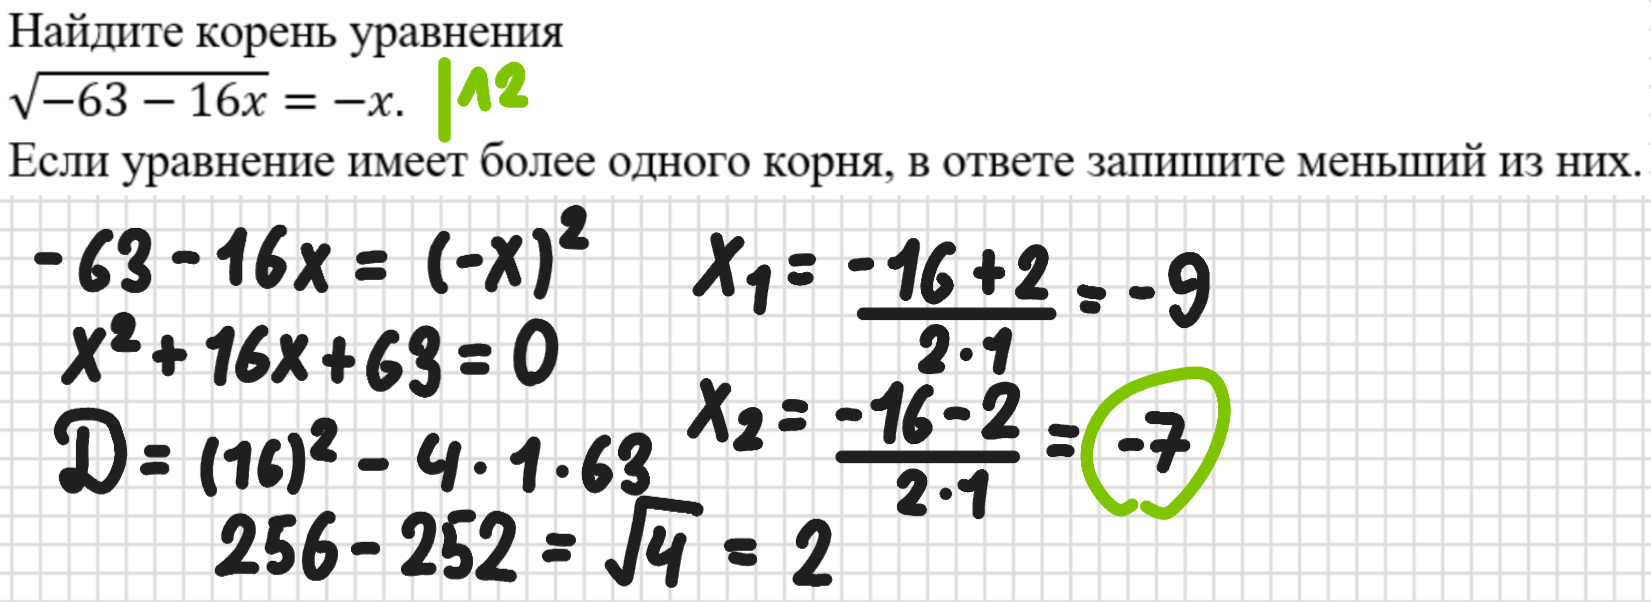 Найдите корень уравнения
√(-63 − 16x) = −x. |12
Если уравнение имеет более одного корня, в ответе запишите меньший из них.
-63 - 16x = (-x)²
x² + 16x + 63 = 0
D = (16)² - 4 · 1 · 63
256 - 252 = √4 = 2
x₁ = (-16 + 2)/(2 · 1) = -9
x₂ = (-16 - 2)/(2 · 1) = -7